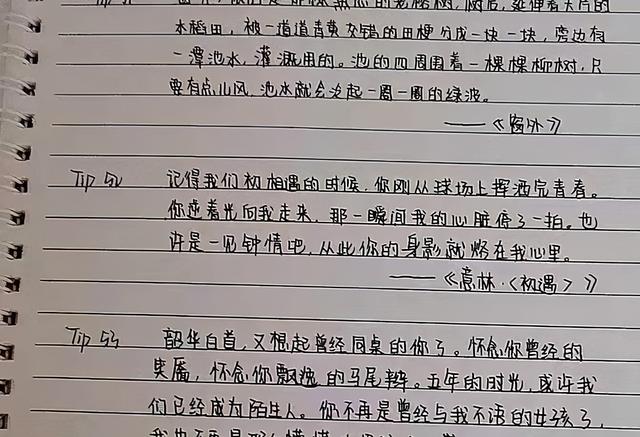 水稻田，被一道道青黄交错的田梗分成一块一块，旁边有
一潭池水，灌溉用的。池的四周围着一棵棵柳树，只
要有点儿风，池水就会泛起一圈一圈的绿波。
——《窗外》
Tip 52 记得我们初相遇的时候，你刚从球场上挥洒完青春。
你逆着光向我走来，那一瞬间我的心脏停了一拍。也
许是一见钟情吧，从此你的身影就烙在我心里。
——《意林·<初遇>》
Tip 53 韶华白首，又想起曾经同桌的你了。怀念你曾经的
笑靥，怀念你飘逸的马尾辫。五年的时光，或许我
们已经成为陌生人。你不再是曾经与我不语的女孩了，